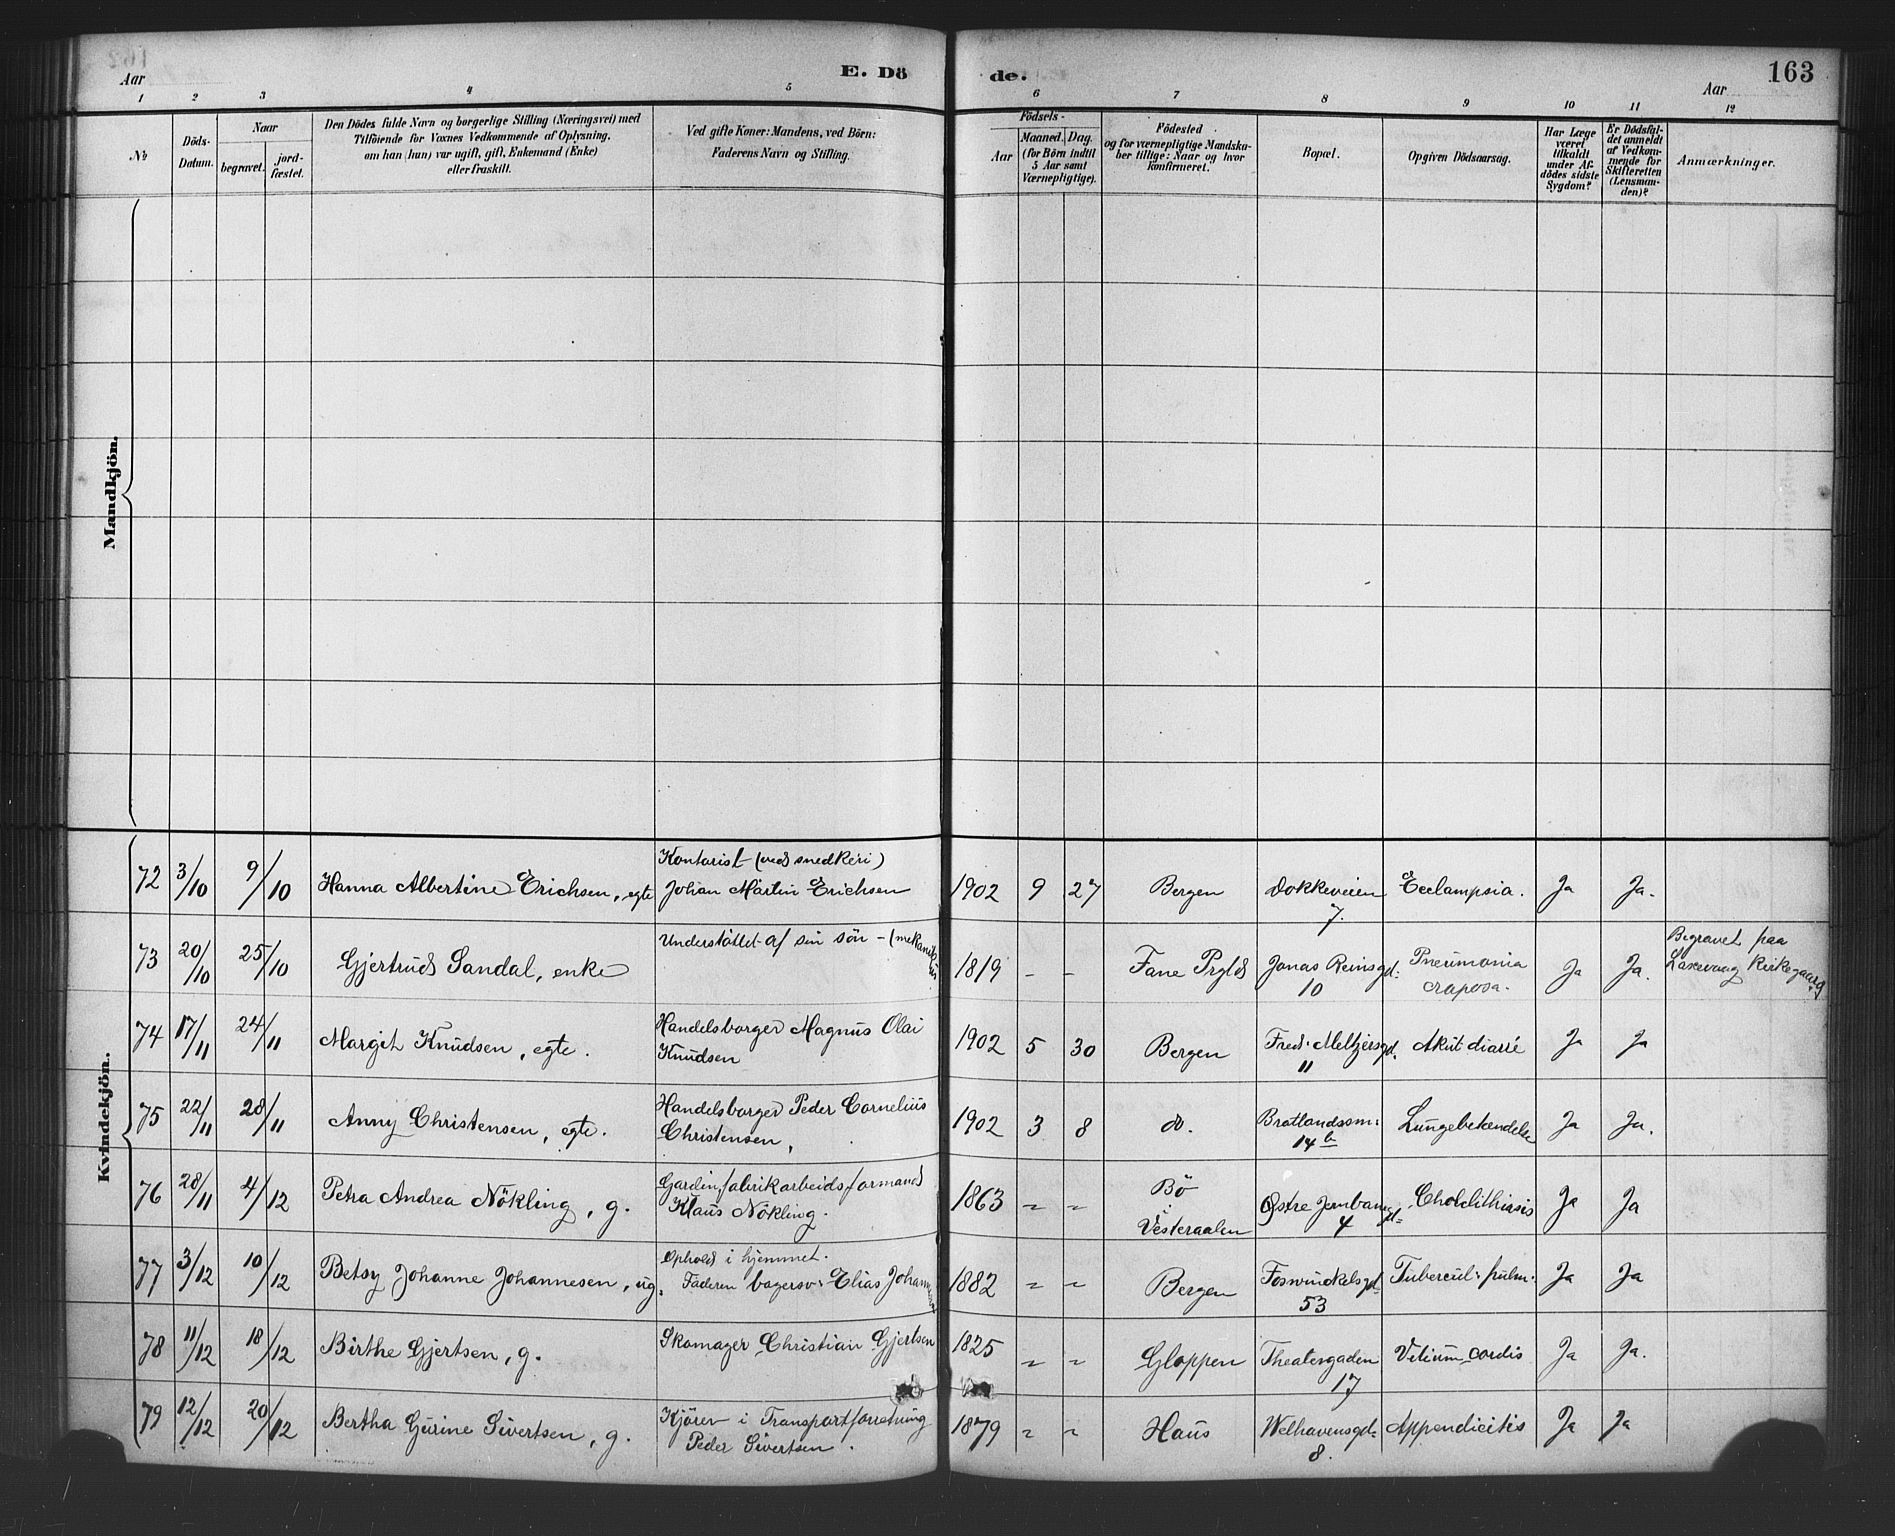 Aar
E. Dö
de.
Aar
163
1 2 3 4 5 6 7 8 9 10 11 12
No
Döds-
Datum.
Naar
begravet.
jord-
fæstet.
Den Dödes fulde Navn og borgerlige Stilling (Næringsvei) med
Tilföiende for Voxnes Vedkommende af Oplysning,
om han (hun) var ugift, gift, Enkemand (Enke)
eller fraskilt.
Ved gifte Koner: Mandens, ved Börn:
Faderens Navn og Stilling.
Födsels-
Aar
Maaned.
Dag.
(for Börn indtil
5 Aar samt
Værnepligtige).
Födested
og for værnepligtige Mandska-
ber tillige: Naar og hvor
konfirmeret.
Bopæl.
Opgiven Dödsaarsag.
Har Læge
været
tilkaldt
under Af-
dödes sidste
Sygdom?
Er Dödsfal-
det anmeldt
af Vedkom-
mende for
Skifteretten
(Lensman-
den)?
Anmærkninger.
Mandkjön.
Kvindekjön.
72 3/10 9/10 Hanna Albertine Erichsen, egte
Kontorist (ved snedkeri)
Johan Martin Erichsen
1902 9 27 Bergen Dokkeveien
7.
Eclampsia. Ja Ja.
73 20/10 25/10 Gjertrud Sandal, enke
Understöttet af sin sön - (mekaniker)
1819 - - Fane Prgld Jonas Reinsgd:
10
Pneumonia
crüposa. Ja Ja.
Begravet paa
Laxevaag Kirkegaard.
74 17/11 24/11 Margit Knudsen, egte.
Handelsborger Magnus Olai
Knudsen
1902 5 30 Bergen Fred. Meltzersgd.
11
Akut diarré Ja Ja
75 22/11 28/11 Anny Christensen, egte.
Handelsborger Peder Cornelius
Christensen,
1902 3 8 do. Bratlandssm:
14 b
Lungebetændelse Ja Ja.
76 28/11 4/12 Petra Andrea Nökling, g.
Gardinfabrikarbeidsformand
Klaus Nökling.
1863 " " Bö
i
Vesteraalen
Östre Jernbanegd:
4
Cholelithiasis Ja Ja
77 3/12 10/12 Betsy Johanne Johannesen, ug.
Ophold i hjemmet.
Faderen bagersv: Elias Johannesen
1882 " " Bergen Foswinckelsgd:
53
Tubercul: pulm. Ja Ja
78 11/12 18/12 Birthe Gjertsen, g.
Skomager Christian Gjertsen
1825 " " Gloppen Theatergaden
17
Vitium cordis Ja Ja.
79 12/12 20/12 Bertha Gurine Sivertsen, g.
Kjörer i Transportforretning
Peder Sivertsen.
1879 " " Haus Welhavensgd:
8.
Appendicitis Ja Ja